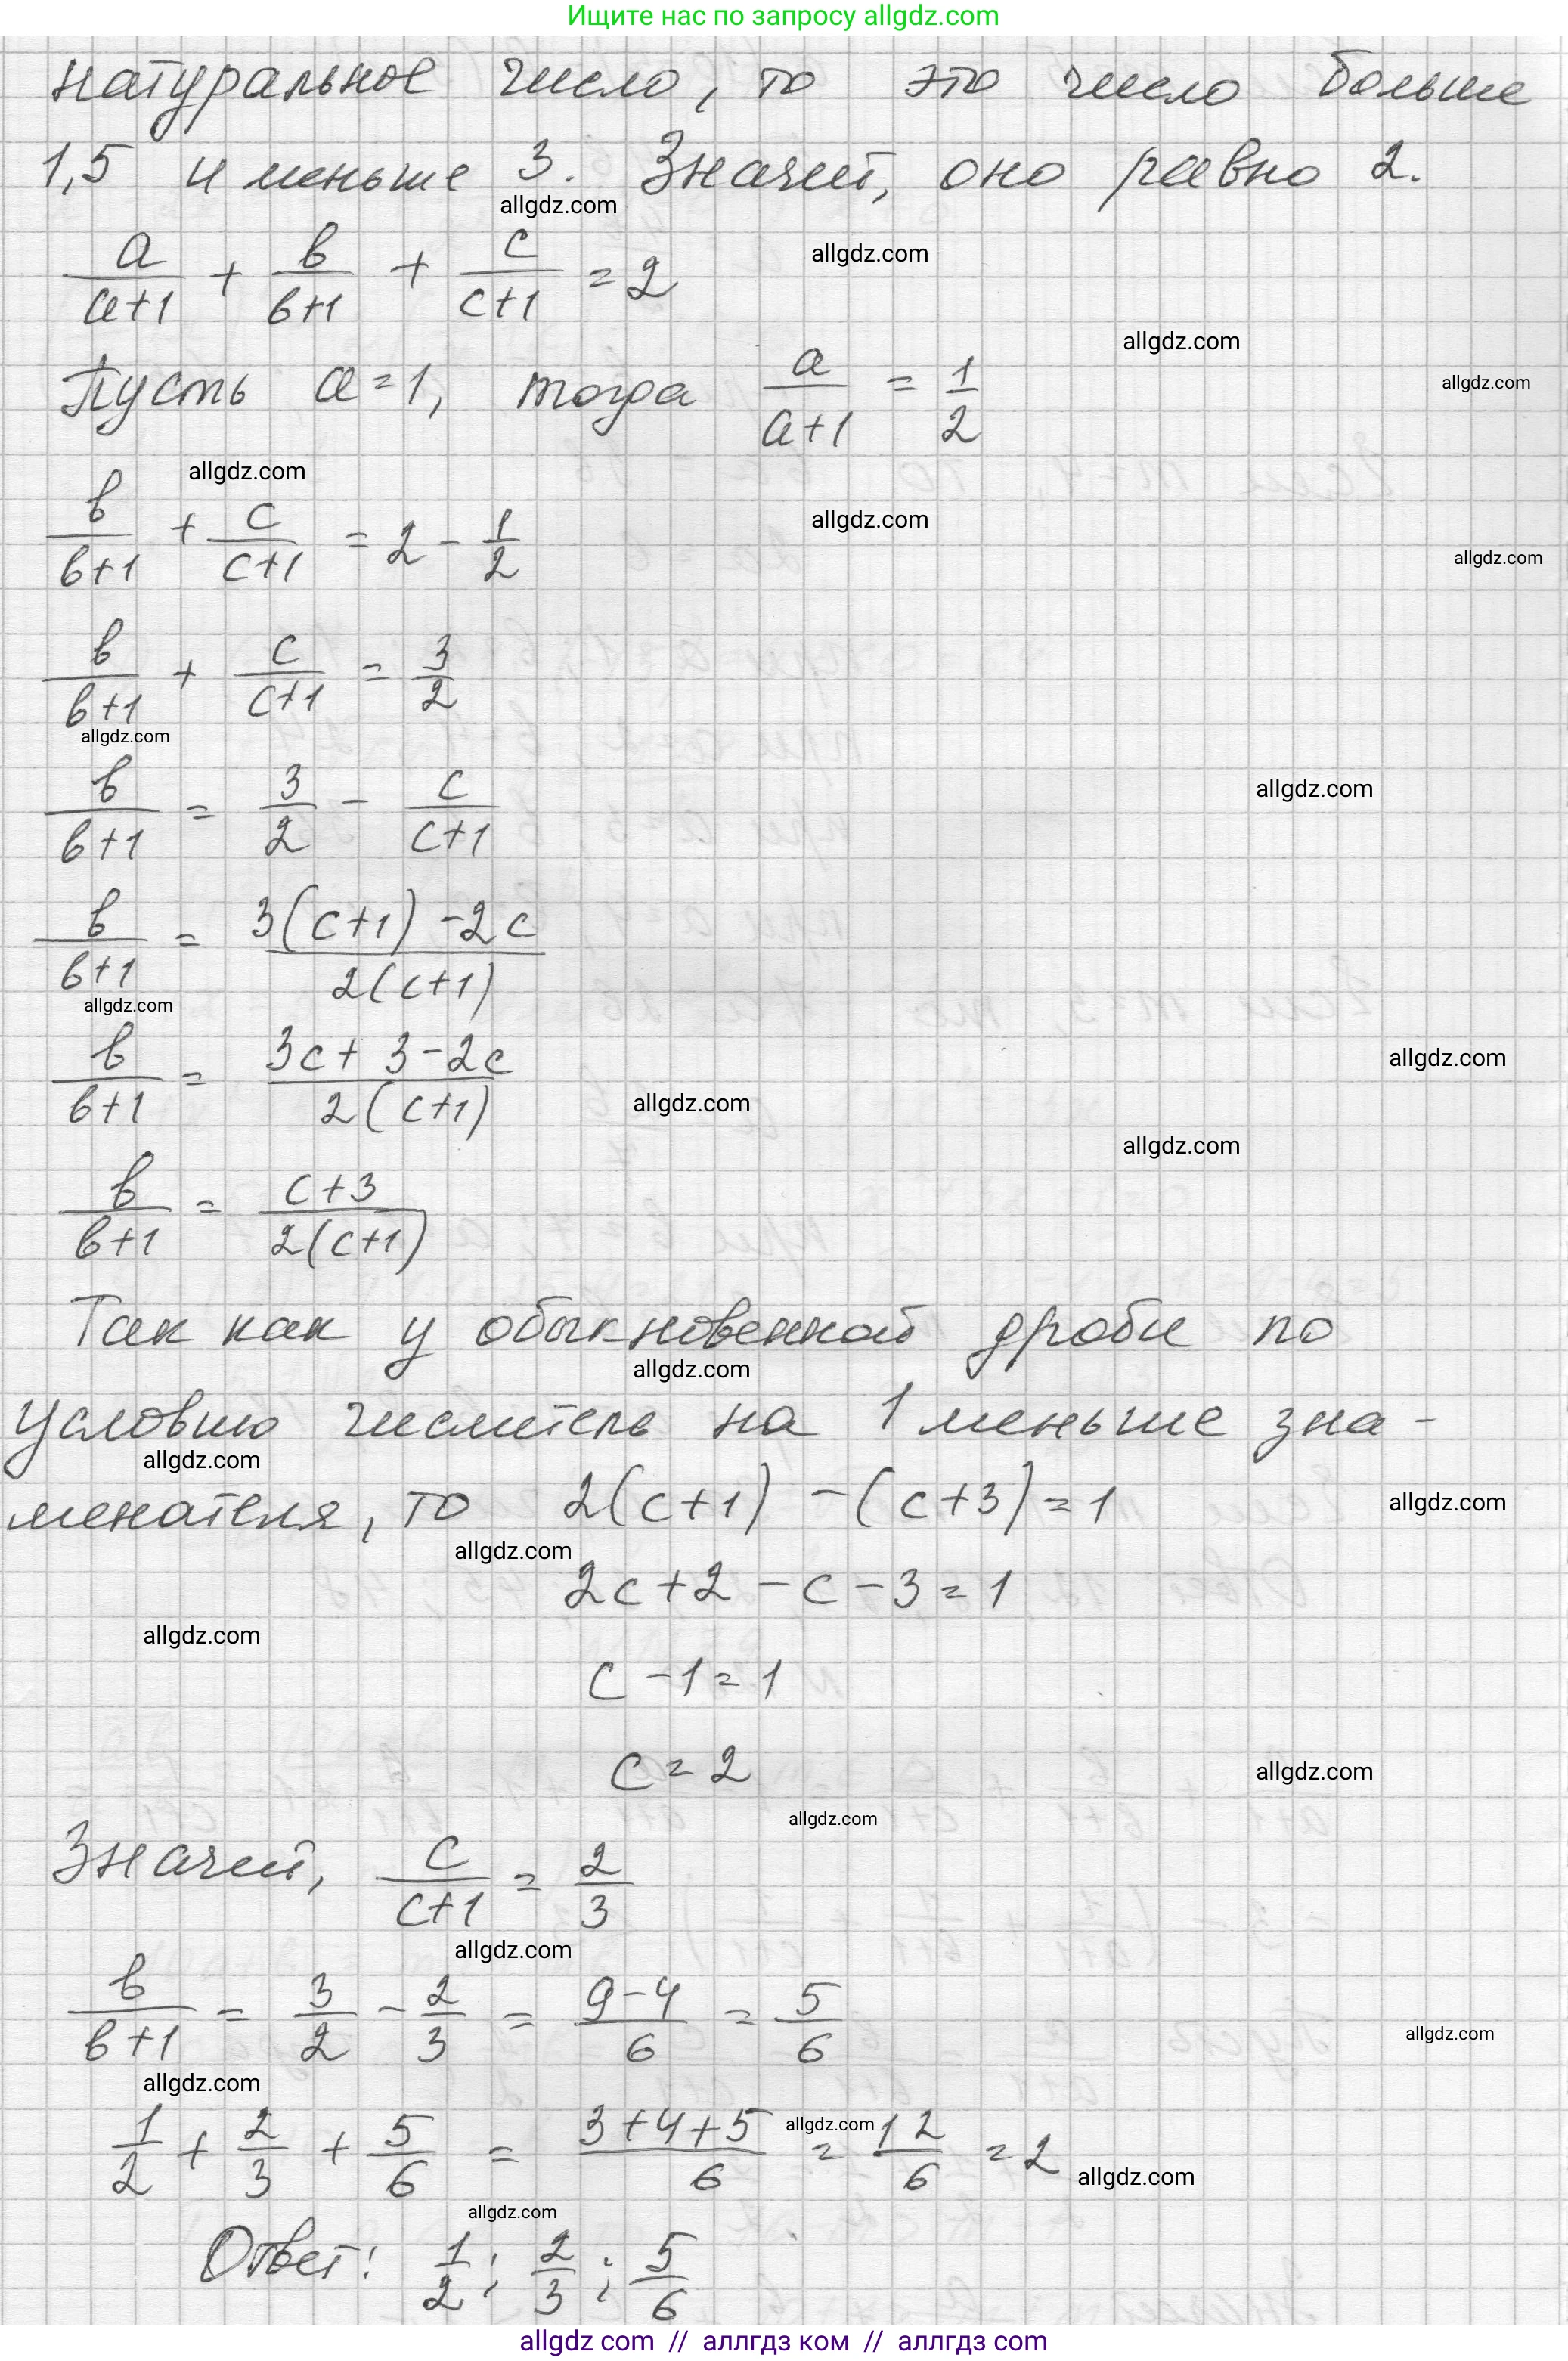 Ищите нас по запросу allgdz.com
натуральное число, то это число больше
1,5 и меньше 3. Значит, оно равно 2.
allgdz.com
a/(a+1) + b/(b+1) + c/(c+1) = 2
allgdz.com
allgdz.com
Пусть a=1, тогда a/(a+1) = 1/2
allgdz.com
allgdz.com
b/(b+1) + c/(c+1) = 2 - 1/2
allgdz.com
allgdz.com
b/(b+1) + c/(c+1) = 3/2
allgdz.com
b/(b+1) = 3/2 - c/(c+1)
allgdz.com
b/(b+1) = (3(c+1) - 2c)/(2(c+1))
allgdz.com
b/(b+1) = (3c + 3 - 2c)/(2(c+1))
allgdz.com
allgdz.com
allgdz.com
b/(b+1) = (c+3)/(2(c+1))
Так как у обыкновенной дроби по
allgdz.com
условию числитель на 1 меньше зна-
allgdz.com
менателя, то 2(c+1) - (c+3) = 1
allgdz.com
allgdz.com
2c + 2 - c - 3 = 1
allgdz.com
c - 1 = 1
c = 2
allgdz.com
allgdz.com
Значит, c/(c+1) = 2/3
allgdz.com
b/(b+1) = 3/2 - 2/3 = (9-4)/6 = 5/6
allgdz.com
allgdz.com
1/2 + 2/3 + 5/6 = (3+4+5)/6 = 12/6 = 2
allgdz.com
allgdz.com
allgdz.com
Ответ: 1/2; 2/3; 5/6
allgdz.com // аллгдз ком // аллгдз com